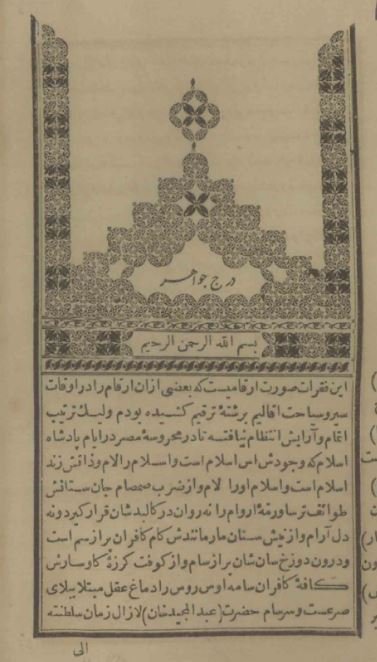 درج جواهر
بسم الله الرحمن الرحيم
این فقرات صورت ارقامیست که بعضی ازان ارقام را در اوقات
سیر وسیاحت اقالیم برشتهٔ ترقیم کشیده بودم ولیک ترتیب
اتمام وآرایش انتظام نیافته تا در محروسهٔ مصر در ایام پادشاه
اسلام که وجودش اس اسلام است واسلام را لام وذاتش زند
اسلام است واسلام اورا لام واز ضرب صمصام جان ستانش
طوائف ترسا ورفهٔ اروام را نه روان در کالبد شان قرار گیرد ونه
دل آرام واز نیش سنان مار مانندش کام کافران پر از سم است
ودرون دوزخ سان شان پر از سام واز کوفت کرزهٔ کاوسارش
کافهٔ کافران سامه اوس روس را دماغ عقل مبتلا ببلای
صرعست وسرسام حضرت (عبد المجید شان) لازال زمان سلطنته
الی